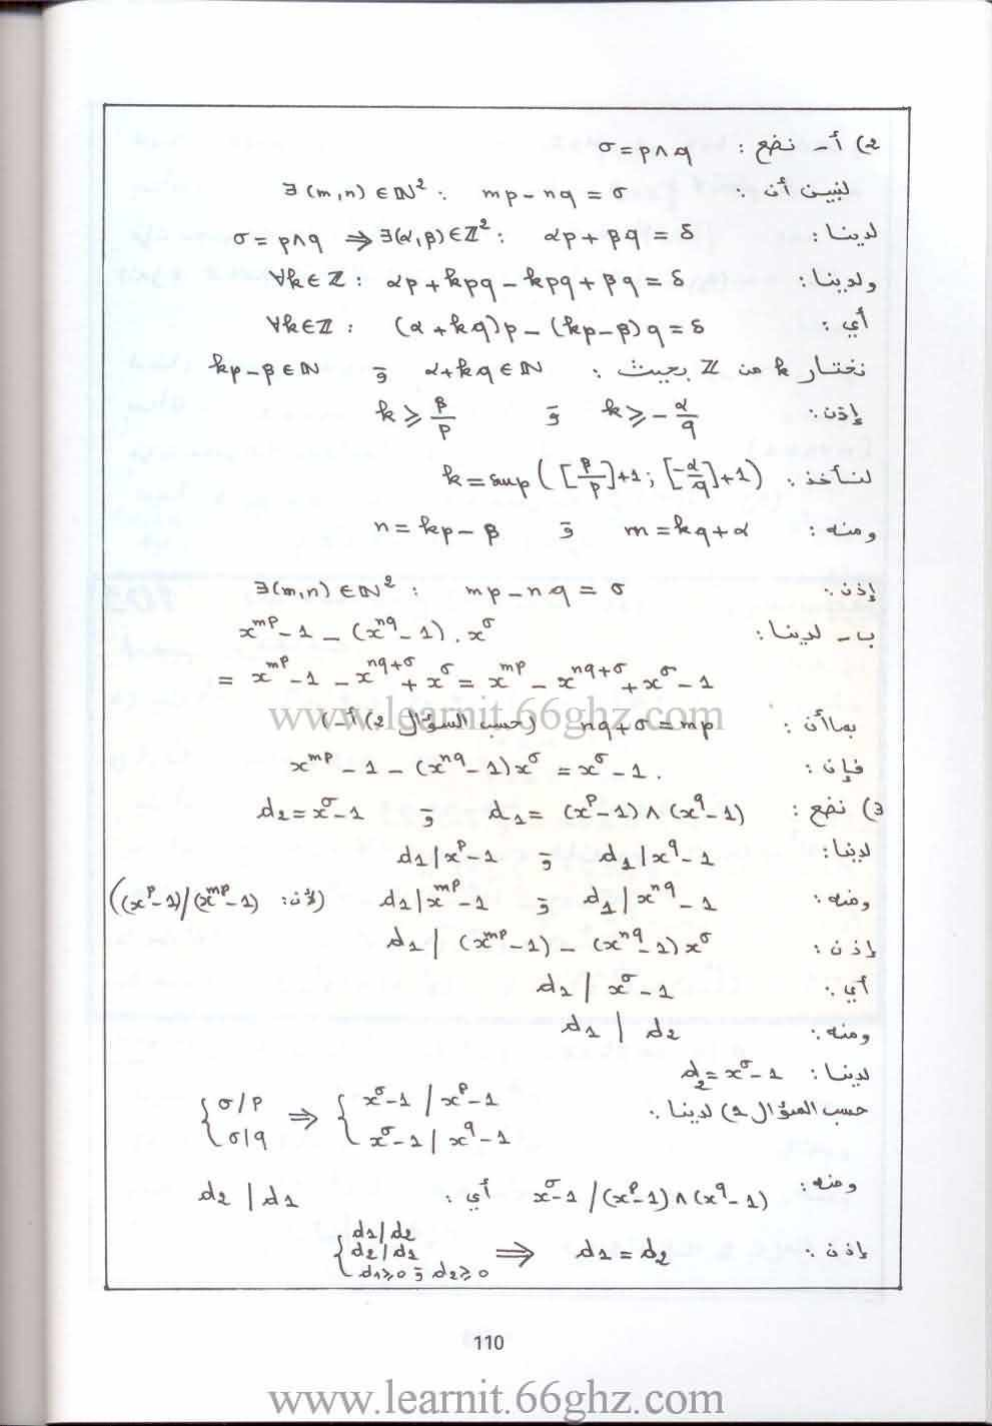 2) أ- نضع : σ = p∧q
لنبين أن : ∃(m,n) ∈ ℕ² : mp - nq = σ
لدينا : σ = p∧q ⇒ ∃(α,β)∈ℤ² : αp + βq = δ
ولدينا : ∀k∈ℤ : αp + kpq - kpq + βq = δ
أي : ∀k∈ℤ : (α + kq)p - (kp - β)q = δ
نختار k من ℤ بحيث : α + kq ∈ ℕ و kp - β ∈ ℕ
إذن : k ≥ -α/q و k ≥ β/p
لنأخذ : k = sup([β/p]+1 ; [-α/q]+1)
ومنه : m = kq + α و n = kp - β
إذن : ∃(m,n) ∈ ℕ² : mp - nq = σ
ب- لدينا : x^{mp} - 1 - (x^{nq} - 1) . x^σ
= x^{mp} - 1 - x^{nq+σ} + x^σ = x^{mp} - x^{nq+σ} + x^σ - 1
بما أن : nq + σ = mp (حسب السؤال 2) أ-)
فإن : x^{mp} - 1 - (x^{nq} - 1)x^σ = x^σ - 1 .
3) نضع : d₁ = (x^p - 1) ∧ (x^q - 1) و d₂ = x^σ - 1
لدينا : d₁ | x^q - 1 و d₁ | x^p - 1
ومنه : d₁ | x^{nq} - 1 و d₁ | x^{mp} - 1 (لأن : (x^p - 1)/(x^{mp} - 1))
إذن : d₁ | (x^{mp} - 1) - (x^{nq} - 1)x^σ
أي : d₁ | x^σ - 1
ومنه : d₁ | d₂
لدينا : d₂ = x^σ - 1
حسب السؤال 1) لدينا : { σ/p ، σ|q ⇒ { x^σ - 1 / x^p - 1 ، x^σ - 1 | x^q - 1
ومنه : x^σ - 1 / (x^p - 1) ∧ (x^q - 1) أي : d₂ | d₁
إذن : { d₁|d₂ ، d₂|d₁ ، d₁≥0 و d₂≥0 ⇒ d₁ = d₂
110
www.learnit.66ghz.com
www.learnit.66ghz.com